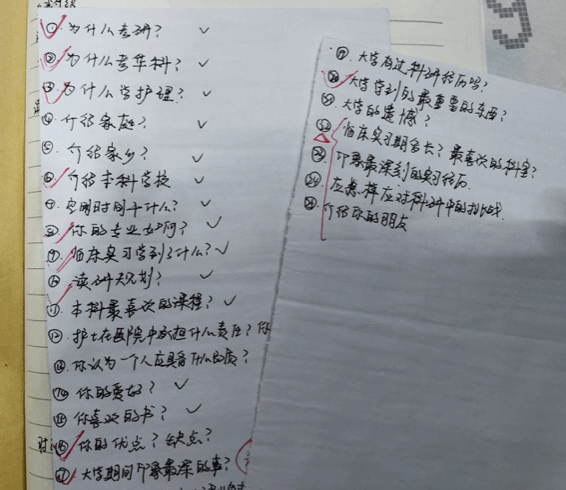 ① 为什么考研? ✓
② 为什么考本科? ✓
③ 为什么学护理? ✓
④ 介绍家庭? ✓
⑤ 介绍家乡? ✓
⑥ 介绍本科学校 ✓
⑦ 空闲时间干什么? ✓
⑧ 你的专业如何? ✓
⑨ 临床实习学到了什么? ✓
⑩ 读研规划? ✓
⑪ 本科最喜欢的课程? ✓
⑫ 护士在医院中承担什么责任? 你
⑬ 你认为一个人应具备什么品质?
⑭ 你的爱好? ✓
⑮ 你喜欢的书? ✓
⑯ 你的优点? 缺点?
⑰ 大学期间印象最深的事?
⑲ 大学有过科研经历吗?
⑳ 大学学到的最重要的东西?
㉑ 大学的遗憾?
㉒ 临床实习期多长? 最喜欢的科室?
㉓ 印象最深刻的实习经历
㉔ 应怎样应对科研中的挑战
㉕ 介绍你的朋友